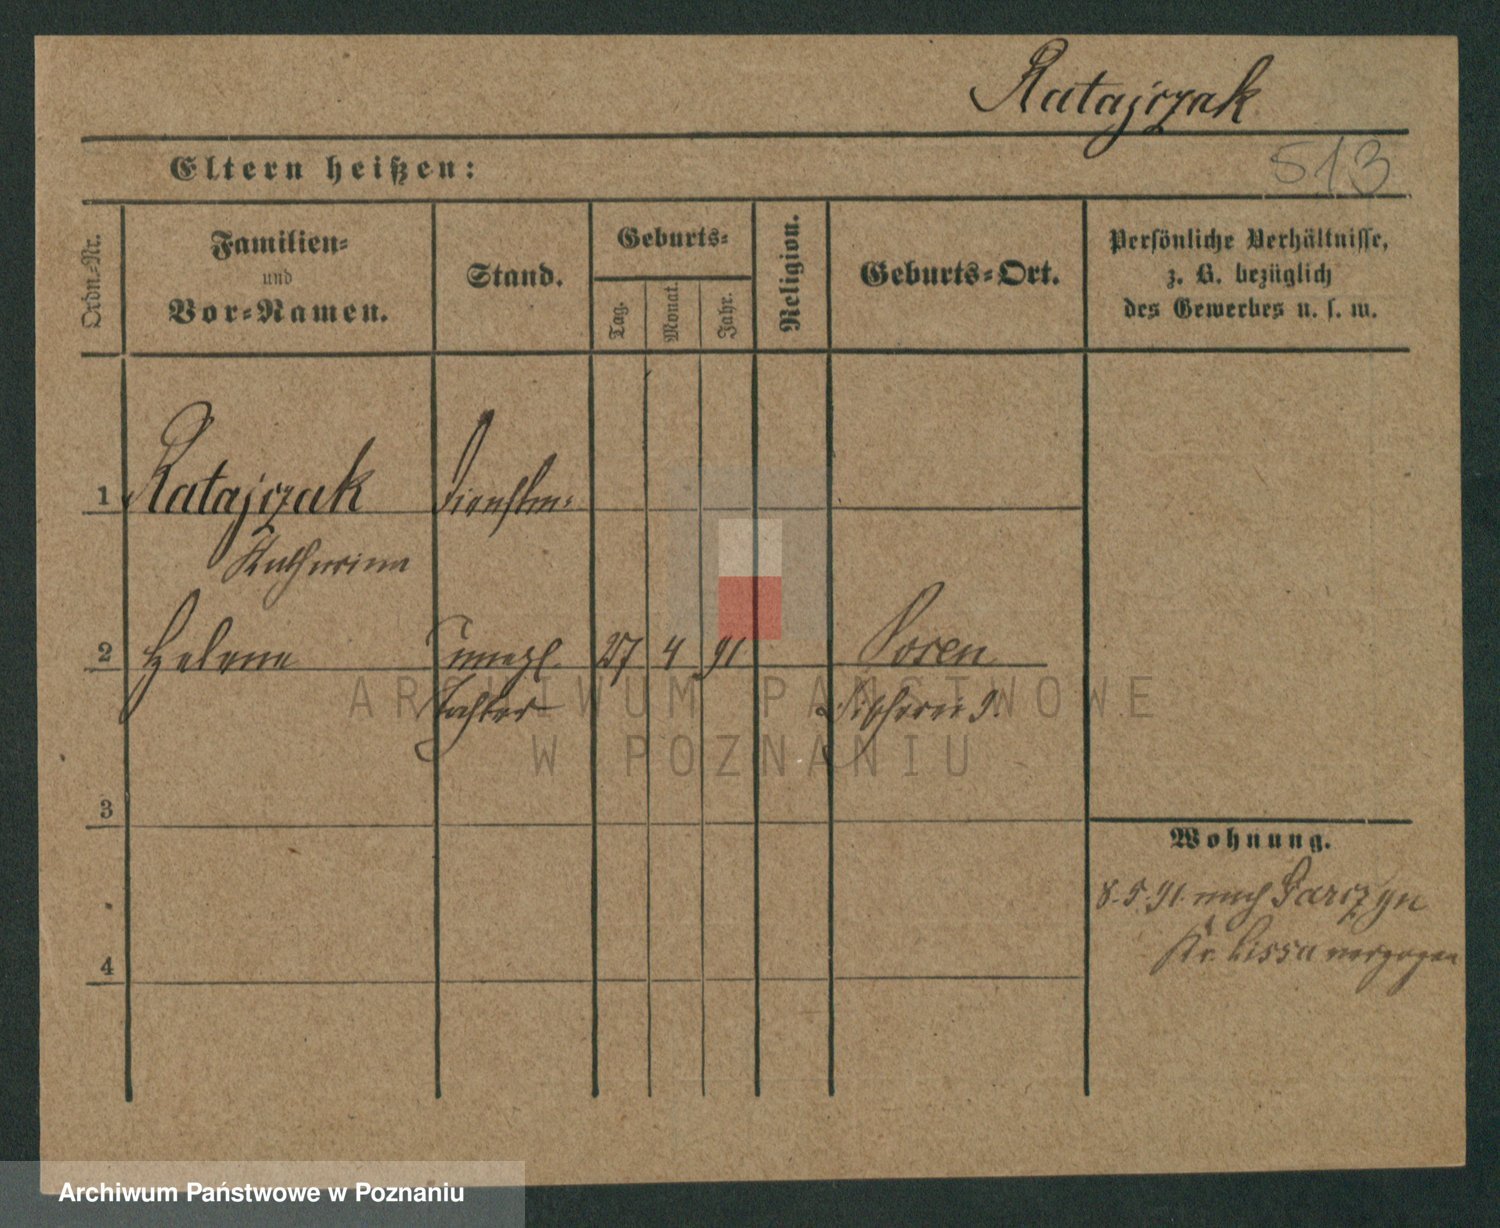 Ratajczak
513
Eltern heißen:
Ordn.-Nr.
Familien-
und
Vor-Namen.
Stand.
Geburts-
Tag.
Monat.
Jahr.
Religion.
Geburts-Ort.
Persönliche Verhältnisse,
z. B. bezüglich
des Gewerbes u. s. w.
1 Ratajczak
Katharina
2 Helene unehl. 27 4 91 Posen
Tochter Fischerei 9.
3
4
Wohnung.
8.5.91. nach Garczyn
Kr. Lissa verzogen
ARCHIWUM PAŃSTWOWE
W POZNANIU
Archiwum Państwowe w Poznaniu